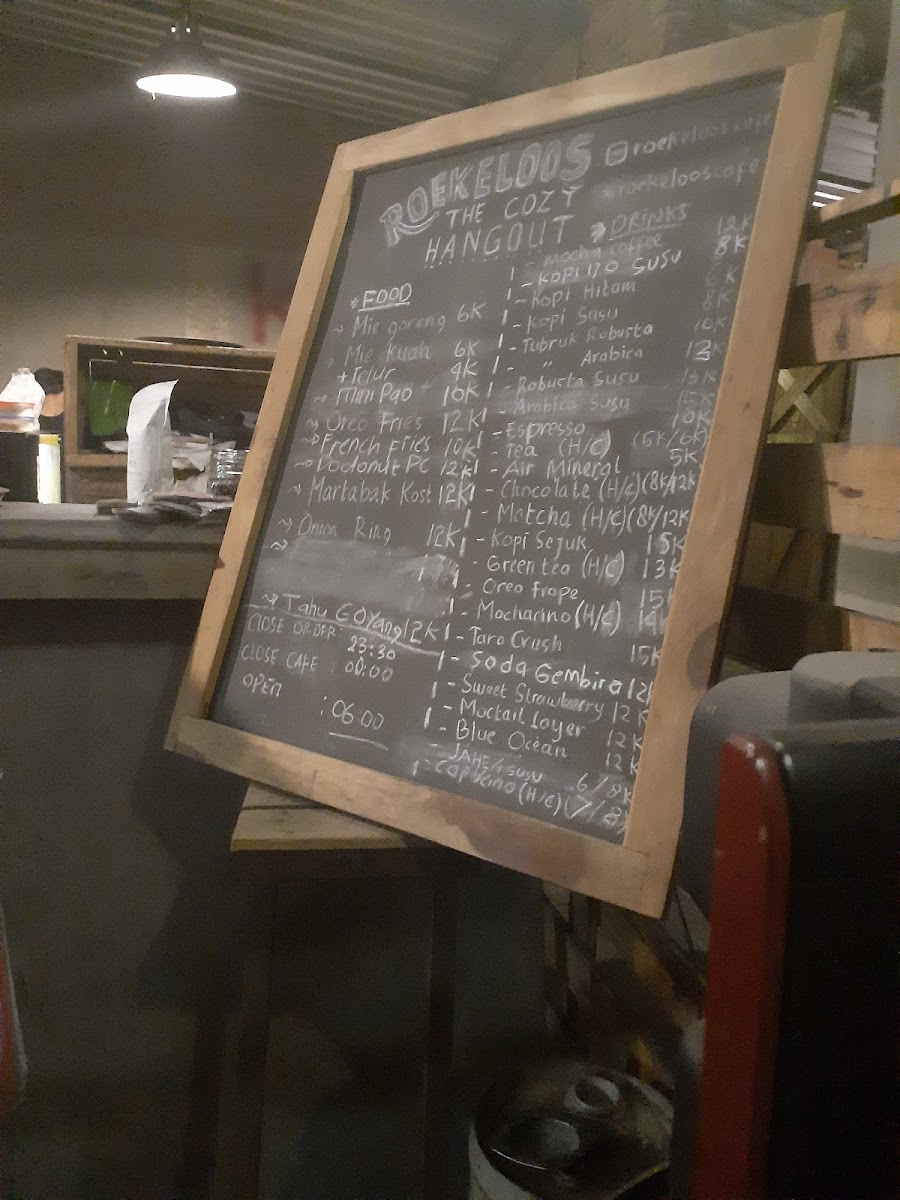 ROEKELOOS
THE COZY
HANGOUT
roekelooscafe
roekelooscafe
FOOD
Mie goreng 6K
Mie Kuah 6K
+Telur 4K
Mini Pao 10K
Oreo Fries 12K
French Fries 10K
Podonut PC 12K
Martabak Kost 12K
Onion Ring 12K
Tahu GOYang 12K
CLOSE ORDER : 23:30
CLOSE CAFE 00:00
OPEN : 06:00
DRINKS
- Mocha coffee 12K
- Kopi 170 SUSU 8K
- Kopi Hitam
- Kopi Susu 8K
- Tubruk Robusta 10K
- " Arabica
- Robusta Susu 13K
- Arabica Susu 15K
- Espresso 10K
- Tea (H/C) (5K/6K)
- Air Mineral 5K
- Chocolate (H/C) (8K/12K
- Matcha (H/C) (8K/12K
- Kopi Sejuk 15K
- Green tea (H/C) 13K
- Oreo Frape 15K
- Mochacino (H/C)
- Taro Crush 15K
- Soda Gembira 12K
- Sweet Strawberry 12K
- Moctail Layer 12K
- Blue Ocean 12K
- JAHE/+SUSU 6/8K
- Capucino (H/C) (7/8)